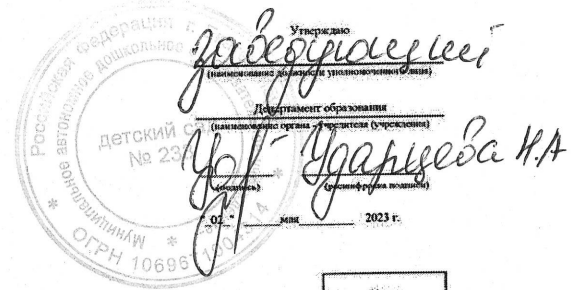 Утверждаю
заведующий
(наименование должности уполномоченного лица)
Департамент образования
(наименование органа - учредителя (учреждения)
Ударцева Н.А
(подпись) (расшифровка подписи)
" 02 " мая 2023 г.
Российская Федерация г.
Муниципальное автономное дошкольное
детский
№ 23
* ОГРН 10696